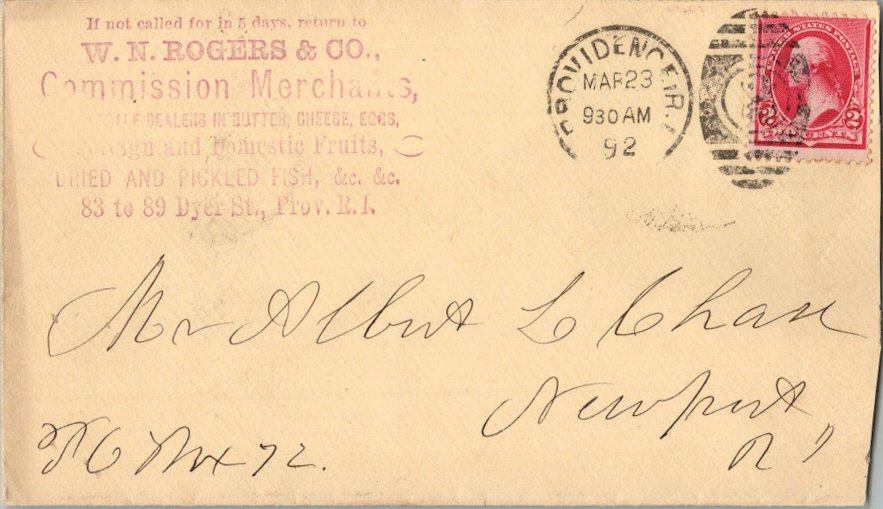 If not called for in 5 days, return to
W. N. ROGERS & CO.,
Commission Merchants,
DEALERS IN BUTTER, CHEESE, EGGS,
Foreign and Domestic Fruits,
DRIED AND PICKLED FISH, &c. &c.
83 to 89 Dyer St., Prov. R. I.
PROVIDENCE, R.I.
MAR 23
930 AM
92
UNITED STATES POSTAGE
2 CENTS 2
Mr Albert L Chase
Newport
R I
P O Box 72.